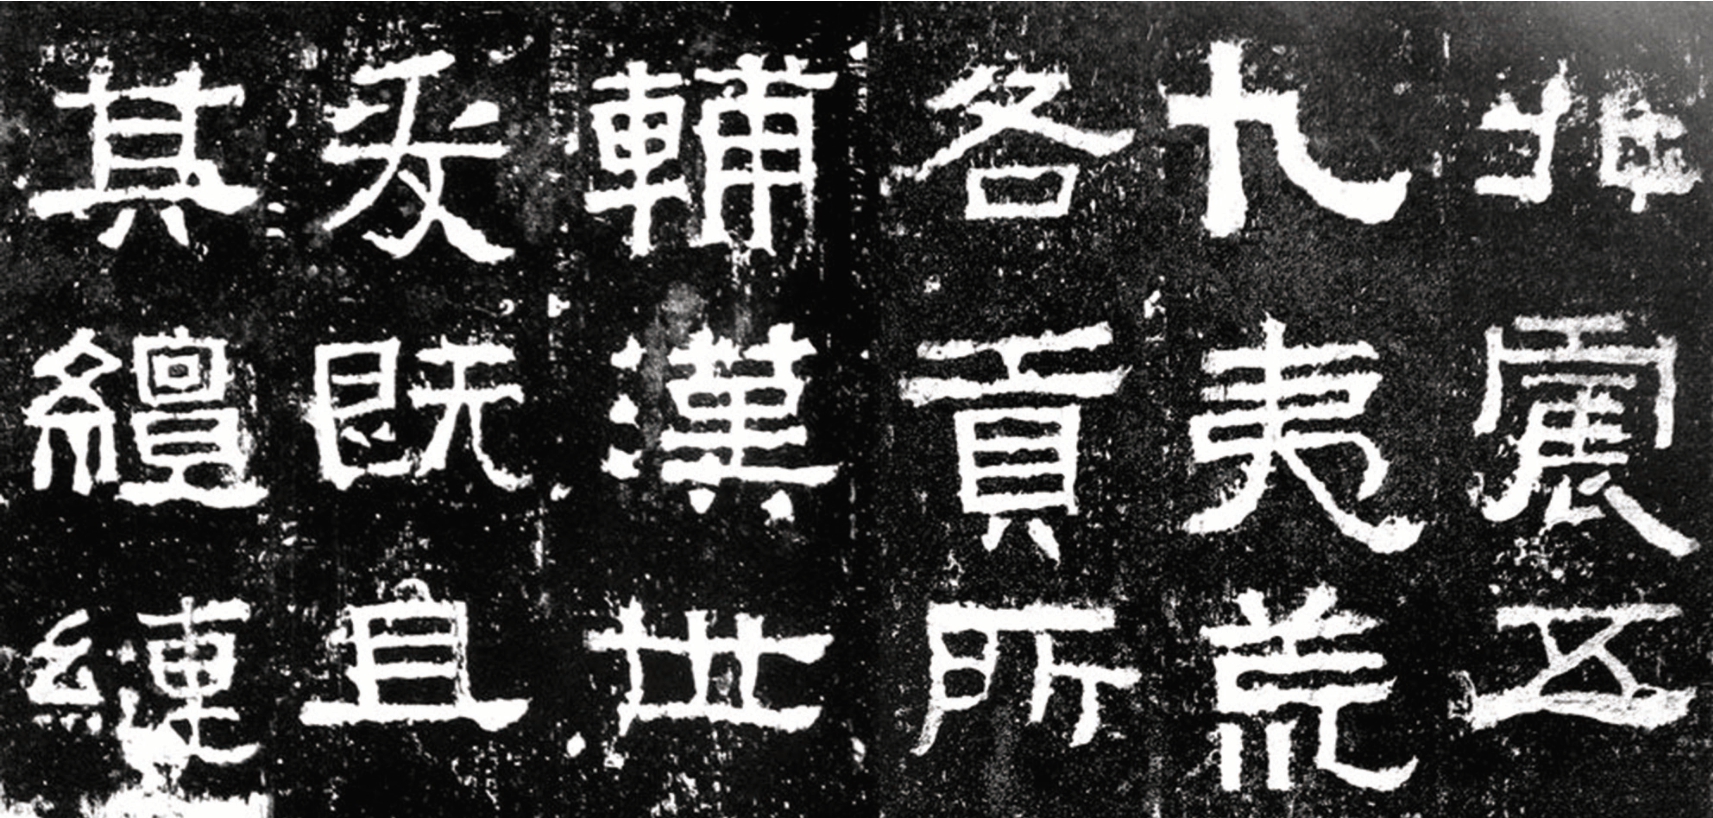 北震五
九夷荒
各貢所
輔漢世
爰既且
其繵縺